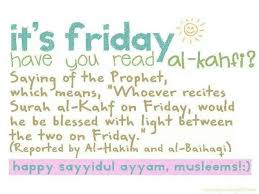 it's friday
have you read al-kahfi?
Saying of the Prophet,
which means, "Whoever recites
Surah al-Kahf on Friday, would
he be blessed with light between
the two on Friday."
(Reported by Al-Hakim and al-Baihaqi)
happy sayyidul ayyam, musleems!:)